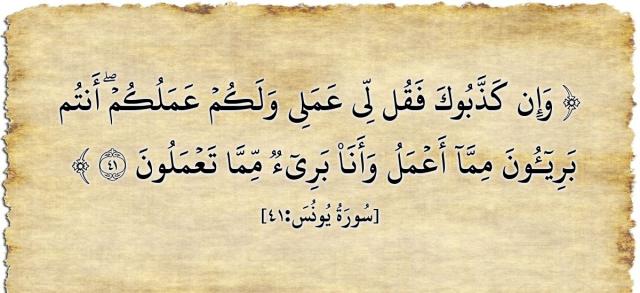 ﴿ وَإِن كَذَّبُوكَ فَقُل لِّى عَمَلِى وَلَكُمۡ عَمَلُكُمۡۖ أَنتُم
بَرِيٓـُٔونَ مِمَّآ أَعۡمَلُ وَأَنَا۠ بَرِىٓءٌ مِّمَّا تَعۡمَلُونَ ٤١ ﴾
[سُورَةُ يُونُسَ:٤١]